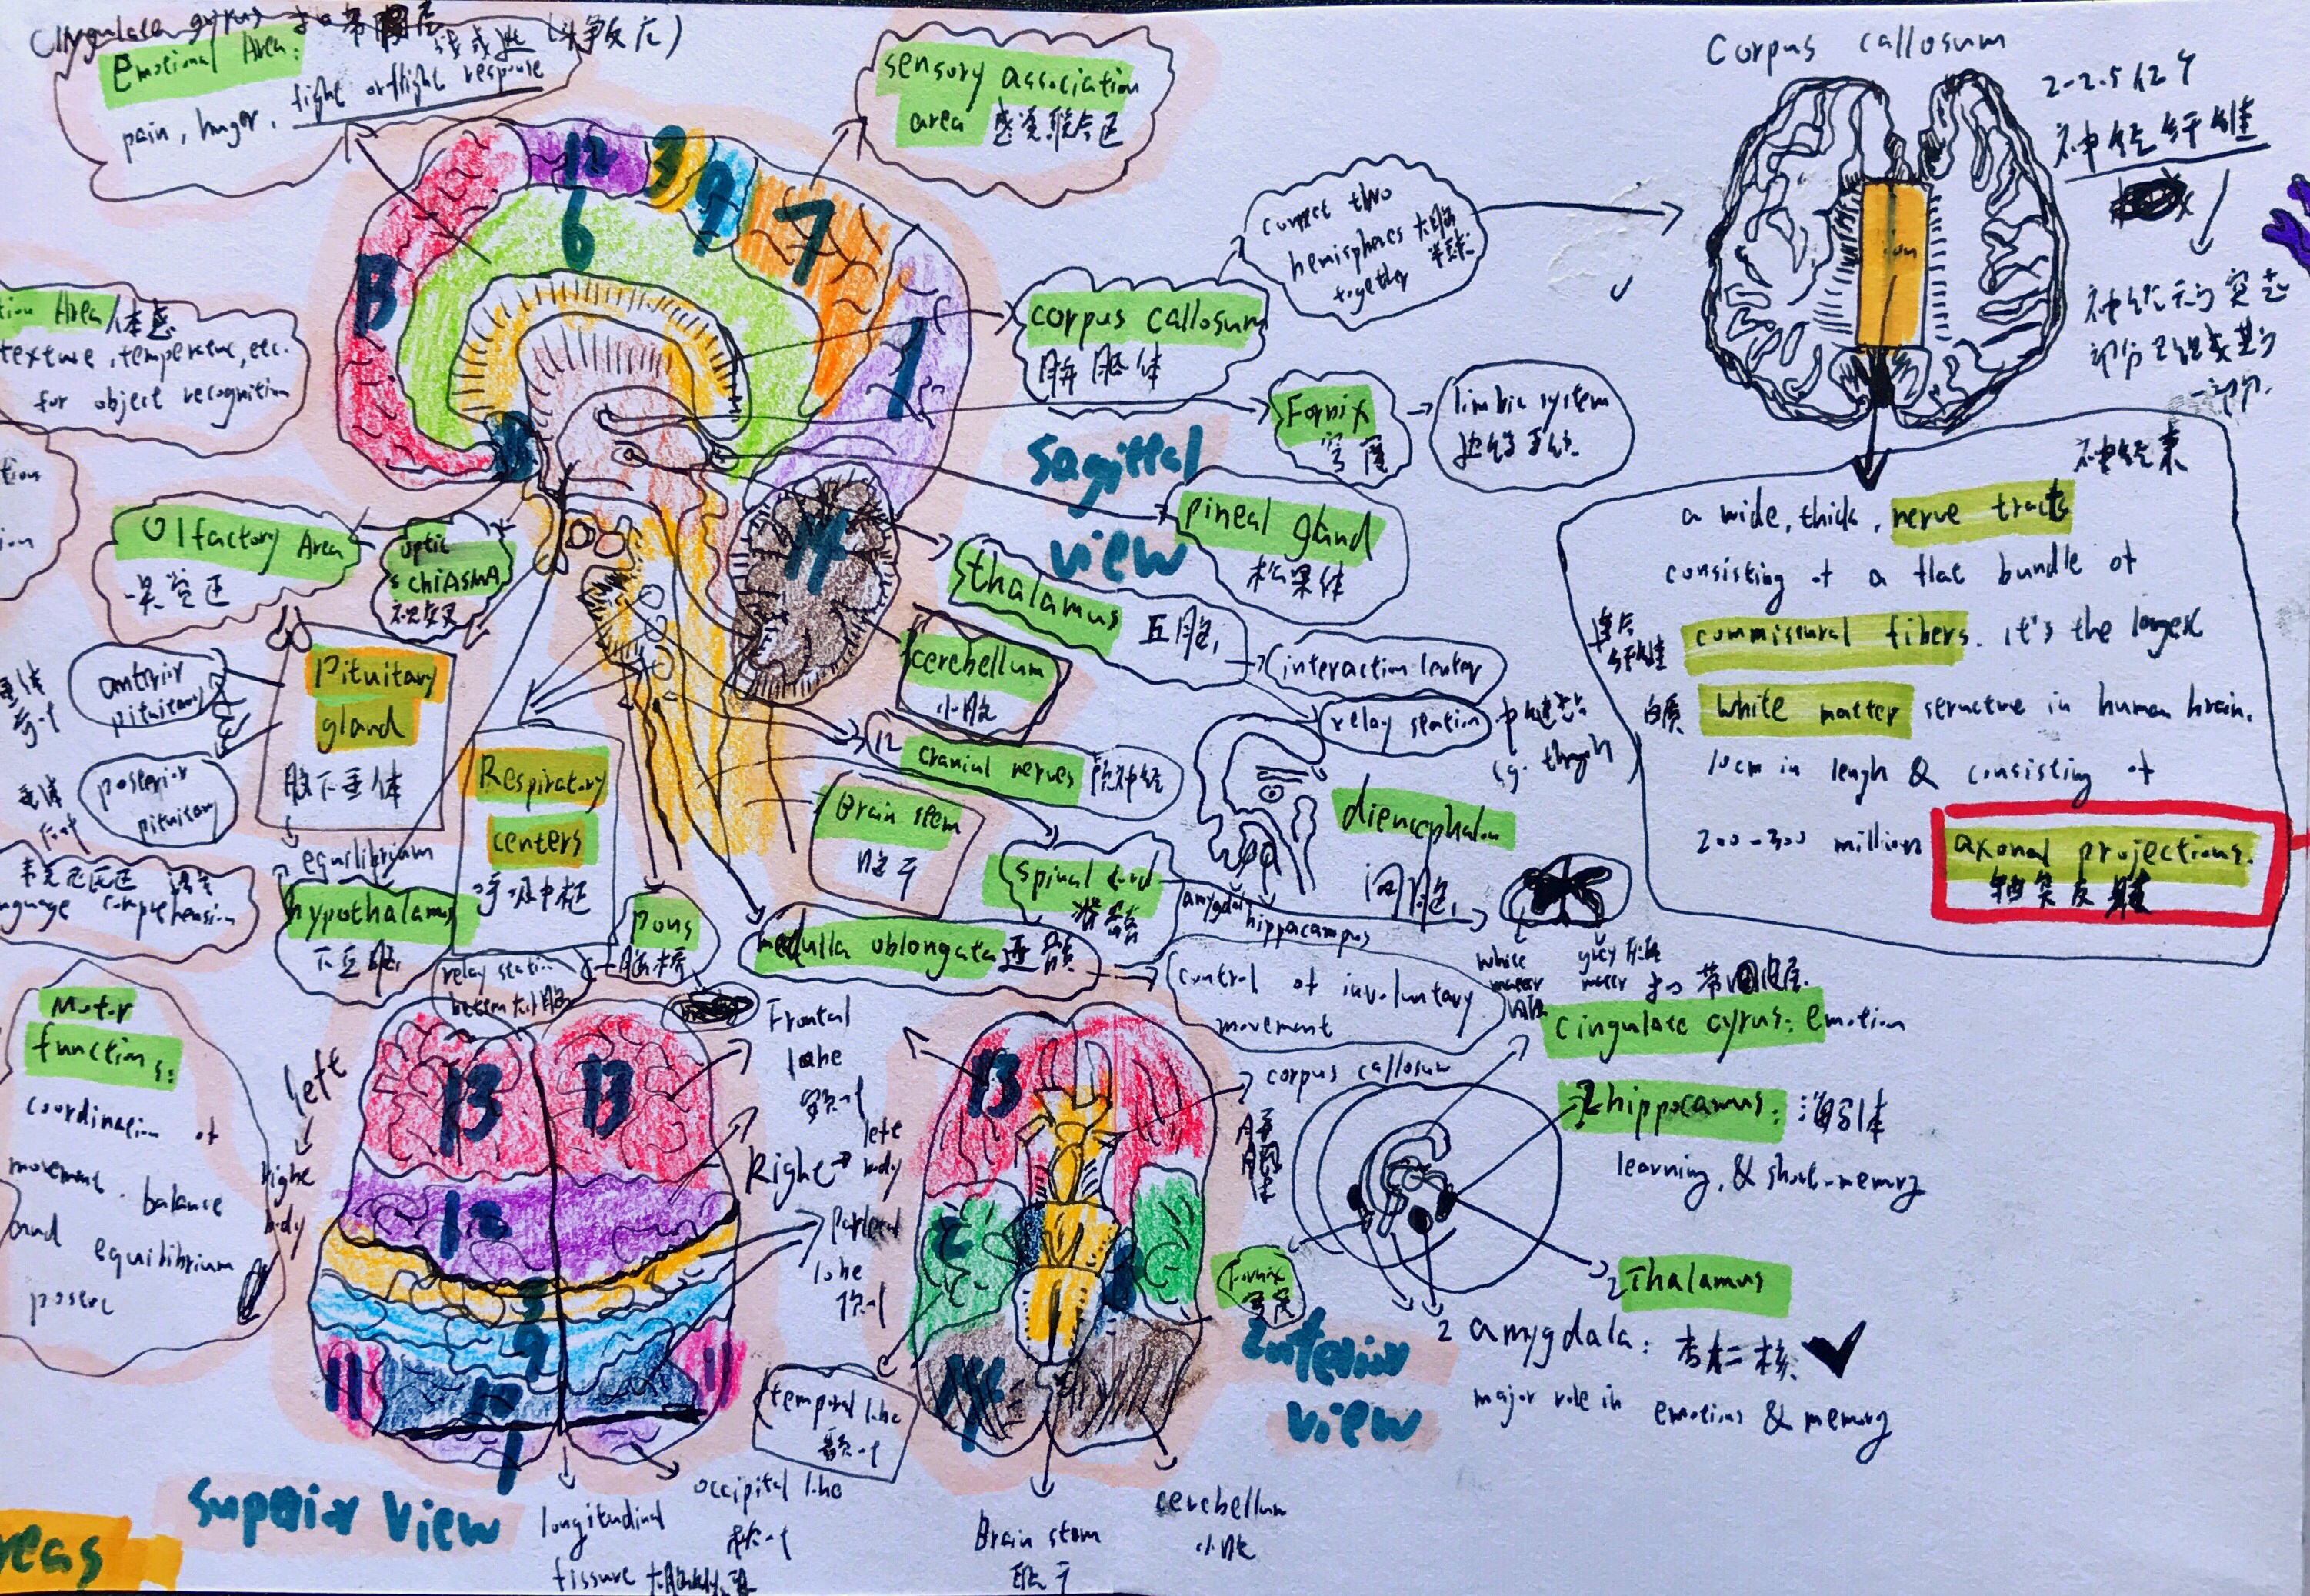 Cingulate gyrus 扣带回层
Emotional Area: 战或逃 (斗争反应)
pain, hunger, fight or flight response
sensory association
area 感觉联合区
12
3
9
7
6
13
1
14
tion Area/体感
texture, temperature, etc.
for object recognition
tion
ion
Olfactory Area
嗅觉区
optic
chiASMA
视交叉
anterior
pituitary
posterior
pituitary
Pituitary
gland
脑下垂体
equilibrium
hypothalamus
下丘脑
Respiratory
centers
呼吸中枢
Pons
脑桥
relay station
medulla oblongata 延髓
control of involuntary
movement
Brain stem
脑干
Spinal cord
脊髓
12
cranial nerves 脑神经
cerebellum
小脑
thalamus 丘脑
interaction center
relay station 中继站
pineal gland
松果体
Fornix
穹窿
limbic system
边缘系统
corpus callosum
胼胝体
connect two
hemispheres 大脑
together 半球
Sagittal
view
diencephalon
间脑
amygdala
hippocampus
white
matter
grey
matter
Corpus callosum
2-2.5亿个
神经纤维
神经元的突起
部分已组成其的
一部分.
神经束
a wide, thick, nerve tracts
consisting of a flat bundle of
连合
纤维
commissural fibers. it's the largest
白质
White matter structure in human brain.
10cm in lengh & consisting of
200-300 million
axonal projections.
扣带回皮层.
cingulate gyrus: emotion
2 hippocamus: 海马体
learning, & short-memory
2 Thalamus
2 amygdala: 杏仁核
major role in emotions & memory
corpus callosum
Fornix
穹窿
Inferior
view
13
2
14
temporal lobe
颞叶
Brain stem
脑干
cerebellum
小脑
韦尼克区 语言
nguage comprehension
Motor
functions:
coordination of
movement. balance
and equilibrium
posture
left
Right
body
13
13
12
3
9
11
11
1
Frontal
lobe
额叶
Right
left
body
Parietal
lobe
顶叶
occipital lobe
枕叶
longitudinal
fissure
Superior View
reas